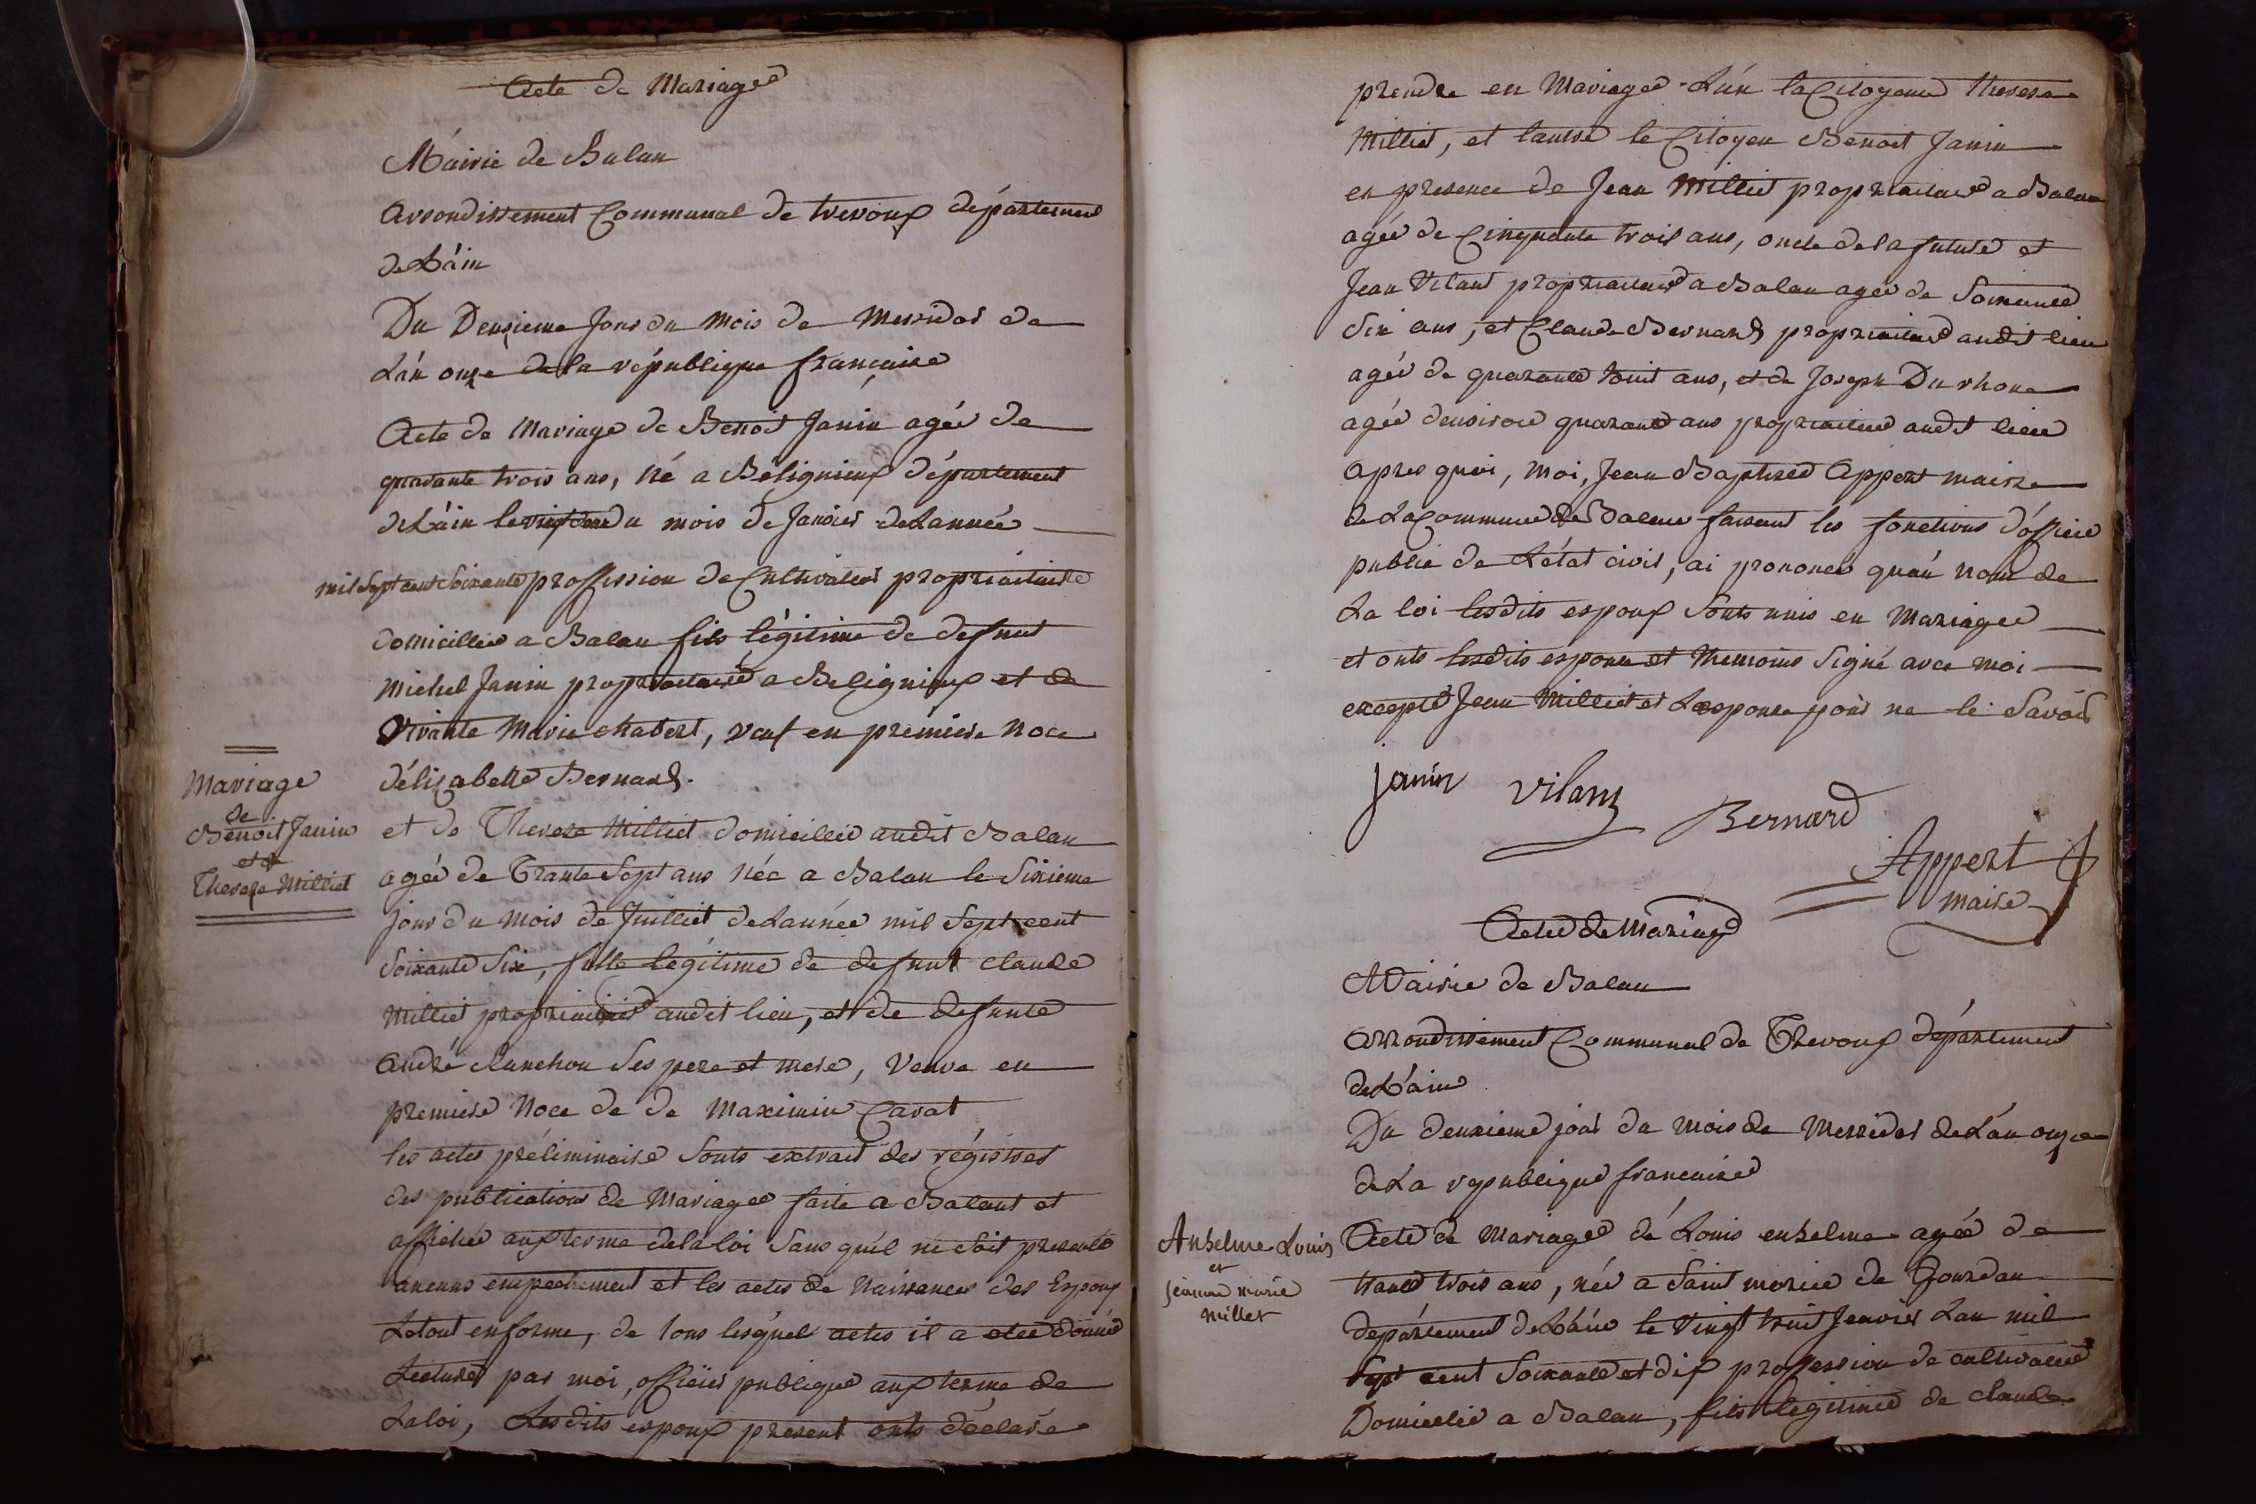 Acte de Mariage
Mairie de Balan
Arrondissement Communal de trevoux département
de L'áin
Du Deuxieme Jour du Mois de Messidor de
L'án onze de la république française
Acte de Mariage de Benoit Janin agée de
quarante trois ans, né a Bélignieux département
de L'áin le du mois de Janvier de Lannée
mil Sept cent Soixante proffession de Cultivateur propriaitaire
domicillié a Balan fils légitime de defunt
Michel Janin propriaitaire a Belignieux et de
Vivante Marie chabert, veuf en premiere Noce
d'élizabette Bernard.
Mariage
de
Benoit Janin
et de
Thereze Milliet
et de Thereze Milliet domicilliée audit Balan
agée de Trante Sept ans née a Balan le Sixieme
jour du Mois de Juilliet de Lannée mil Sept cent
Soixante Six, fille légitime de defunt claude
Milliet propriaitaire audit lieu, et de defunte
André clunchon Ses pere et mere, Veuve en
premiere Noce de de Maximin Cavat
les actes préliminaire Sonts extrait des régistres
des publications de Mariage faite a Balant et
affichée aux terme de la loi Sans qu'il ne Soit presenté
aucuns empechement et les actes de Naissances des Espoux
Le tout en forme, de tous lesquel actes il a étée donné
Lecture par moi, officier publique aux terme de
La loi, Lesdits espoux present onts déclaré
prendre en Mariage L'ún la Citoyenne therese
Milliet, et lautre le Citoyen Benoit Janin
en presence de Jean Milliet propriaitaire a Balan
agée de Cinquante trois ans, oncle de la future et
Jean Vilant propriaitaire a Balan agée de Soixante
Six ans, et Claude Bernard propriaitaire audit lieu
agée de quarante huit ans, et de Joseph Du rhone
agée denviron quarante ans propriaitaire audit lieu
Apres quoi, Moi, Jean Baptiste Appert maire
de La Commune de Balan faisant les fonctions d'óffiecie
public de L'état civil, ai prononcé qu'áu nom de
La loi lesdits espoux Sonts unis en Mariage
et onts lesdits espoux et themoins Signé avec moi
excepté Jean Milliet et Lespouse pour ne le Savoir
janin Vilant Bernard
Appert
maire
Acte de Mariage
Mairie de Balan
Arrondissement Communal de Trevoux département
de L'áin
Du deuxieme jour du Mois de Messidor de L'án onze
de La republique francaise
Anselme Louis
et
jeanne marie
millet
Acte de Mariage de Louis enselme agée de
trante trois ans, née a Saint morice de Gourdan
departement de L'áin le Vingt huit Janvier Lan mil
Sept cent Soixante et dix proffession de cultivateur
Domicilié a Balan, fils legitime de claude